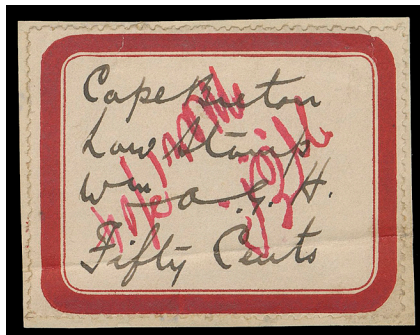 Cape Breton
Law Stamp
Wm A. G. H.
Fifty Cents